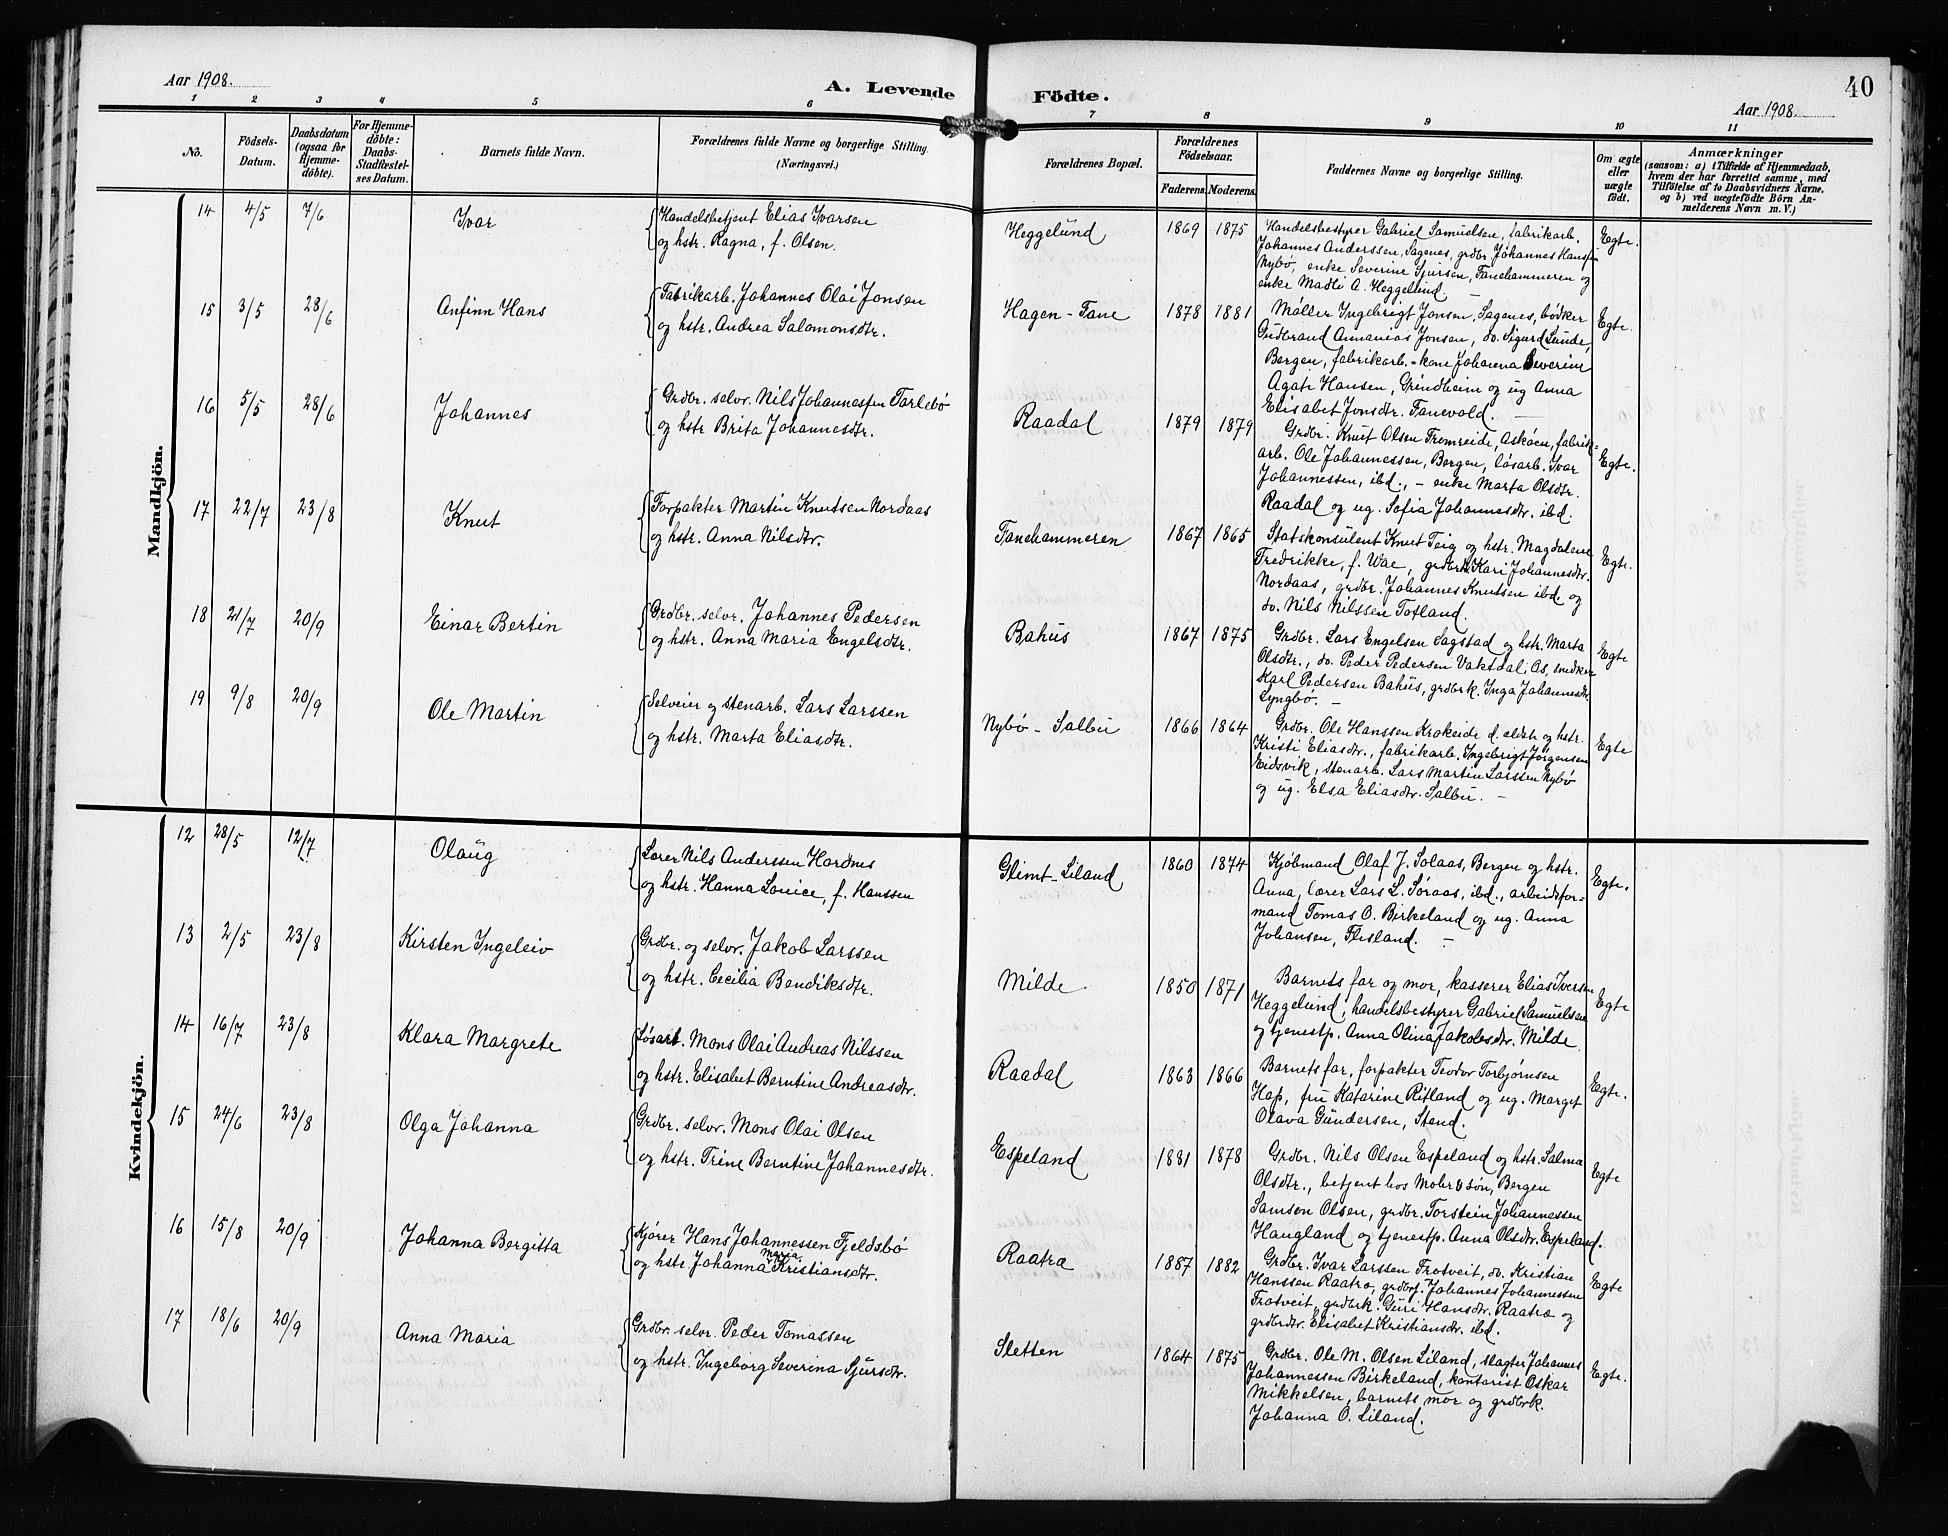 Aar 1908.
A. Levende Födte.
40
Aar 1908.
1 2 3 4 5 6 7 8 9 10 11
No.
Födsels-Datum.
Daabsdatum (ogsaa for Hjemme-döbte).
For Hjemme-döbte: Daabs-Stadfæstel-ses Datum.
Barnets fulde Navn.
Forældrenes fulde Navne og borgerlige Stilling. (Næringsvei.)
Forældrenes Bopæl.
Forældrenes Födselsaar.
Faderens. Moderens.
Faddernes Navne og borgerlige Stilling.
Om ægte eller uægte födt.
Anmærkninger
(saasom: a) i Tilfælde af Hjemmedaab,
hvem der har forrettet samme, med
Tilföielse af to Daabsvidners Navne.
og b) ved uægtefödte Börn An-
melderens Navn m. V.)
Mandkjön.
14 4/5 7/6 Ivar
Handelsbetjent Elias Ivarsen
og hstr. Ragna, f. Olsen.
Heggelund 1869 1875
Handelsbestyrer Gabriel Samuelsen, fabrikarb.
Johannes Anderssen, Sagenes, grdbr Johannes Hansen
Nybö, enke Severine Sjursen, Fanehammeren og
enke Madli A. Heggelund.
Egte.
15 3/5 28/6 Anfinn Hans
Fabrikarb. Johannes Olai Jonsen
og hstr. Andrea Salomonsdtr.
Hagen - Fane 1878 1881
Møller Ingebrigt Jonsen, Sagenes, bødker
Gudbrand Annanias Jonsen, do. Sigurd Lunde,
Bergen, fabrikarb.-kone Johanna Severine
Agate Hansen, Grindheim og ug Anna
Elisabet Jonsdtr. Fanevold. —
Egte.
16 5/5 28/6 Johannes
Grdbr. selv. Nils Johannessen Tarlebø
og hstr Brita Johannesdtr.
Raadal 1879 1879
Grdbr. Knut Olsen Tromreide, Askøen, fabrik-
arb. Ole Johannessen, Bergen, løsarb. Ivar
Johannessen, ibd., - enke Marta Olsdtr.
Raadal og ug. Sofia Johannesdtr. ibd.
Egte.
17 22/7 23/8 Knut
Forpakter Martin Knutsen Nordaas
og hstr. Anna Nilsdtr.
Fanehammeren 1867 1865
Statskonsulent Knut Teig og hstr. Magdalene
Fredrikke, f. Wae, grdbrk Kari Johannesdtr.
Nordaas, grdbr. Johannes Knutsen ibd og
do. Nils Nilssen Totland.
Egte.
18 21/7 20/9 Einar Bertin
Grdbr. selv. Johannes Pedersen
og hstr. Anna Maria Engelsdtr.
Bahus 1867 1875
Grdbr. Lars Engelsen Sagstad og hstr. Marta
Olsdtr., do. Peder Pedersen Vaksdal, Os, snedker
Karl Pedersen Bahus, grdbrk. Inga Johannesdtr.
Lyngbø. —
Egte
19 9/8 20/9 Ole Martin
Selveier og stenarb. Lars Larssen
og hstr. Marta Eliasdtr.
Nybø - Salbu 1866 1864
Grdbr. Ole Hanssen Krokeide d. eldste og hstr.
Kristi Eliasdtr., fabrikarb. Ingebrigt Jørgensen
Eidsvik, stenarb. Lars Martin Larssen Nybø
og ug. Elsa Eliasdtr. Salbu. —
Egte
Kvindekjön.
12 28/5 12/7 Olaug
Lærer Nils Anderssen Hordnes
og hstr. Hanna Lovice, f. Hanssen
Glimt - Liland 1860 1874
Kjøbmand Olaf J. Solaas, Bergen og hstr.
Anna, lærer Lars L. Søraas, ibd., arbeidsfor-
mand Tomas O. Birkeland og ug. Anna
Johansen, Flesland. —
Egte.
13 2/5 23/8 Kirsten Ingeleiv
Grdbr. og selv. Jakob Larssen
og hstr. Cecilia Bendiksdtr.
Milde 1850 1871
Barnets far og mor, kasserer Elias Iversen
Heggelund, handelsbestyrer Gabriel Samuelsen
og tjenestp. Anna Olina Jakobsdtr. Milde
Egte
14 16/7 23/8 Klara Margrete
Løsarb. Mons Olai Andreas Nilssen
og hstr. Elisabet Berntine Andreasdtr.
Raadal 1863 1866
Barnets far, forpakter Teodor Torbjørnsen
Hop, fru Katarine Ritland og ug. Margit
Olava Gundersen, Stend.
Egte.
15 24/6 23/8 Olga Johanna
Grdbr. selv. Mons Olai Olsen
og hstr. Trine Berntine Johannesdtr.
Espeland 1881 1878
Grdbr. Nils Olsen Espeland og hstr. Salma
Olsdtr., betjent hos Mohr & søn, Bergen
Samson Olsen, grdbr. Torstein Johannessen
Haugland og tjenestp. Anna Olsdtr. Espeland.
Egte
16 15/8 20/9 Johanna Bergitta
Kjører Hans Johannessen Fjeldsbø
og hstr. Johanna Maria Kristiansdtr.
Raatræ 1887 1882
Grdbr. Ivar Larssen Frotveit, do. Kristian
Hanssen Raatræ, grdbrs. Johannes Johannessen
Frotveit, grdbrk. Guri Hansdtr. Raatræ og
grdbrdtr. Elisabet Kristiansdtr. ibd.
Egte
17 18/6 20/9 Anna Maria
Grdbr. selv. Peder Tomassen
og hstr. Ingeborg Severina Sjursdtr.
Sletten 1864 1875
Grdbr. Ole M. Olsen Liland, slagter Johannes
Johannessen Birkeland, kontorist Oskar
Mikkelsen, barnets mor og grdbrk.
Johanna O. Liland.
Egte.